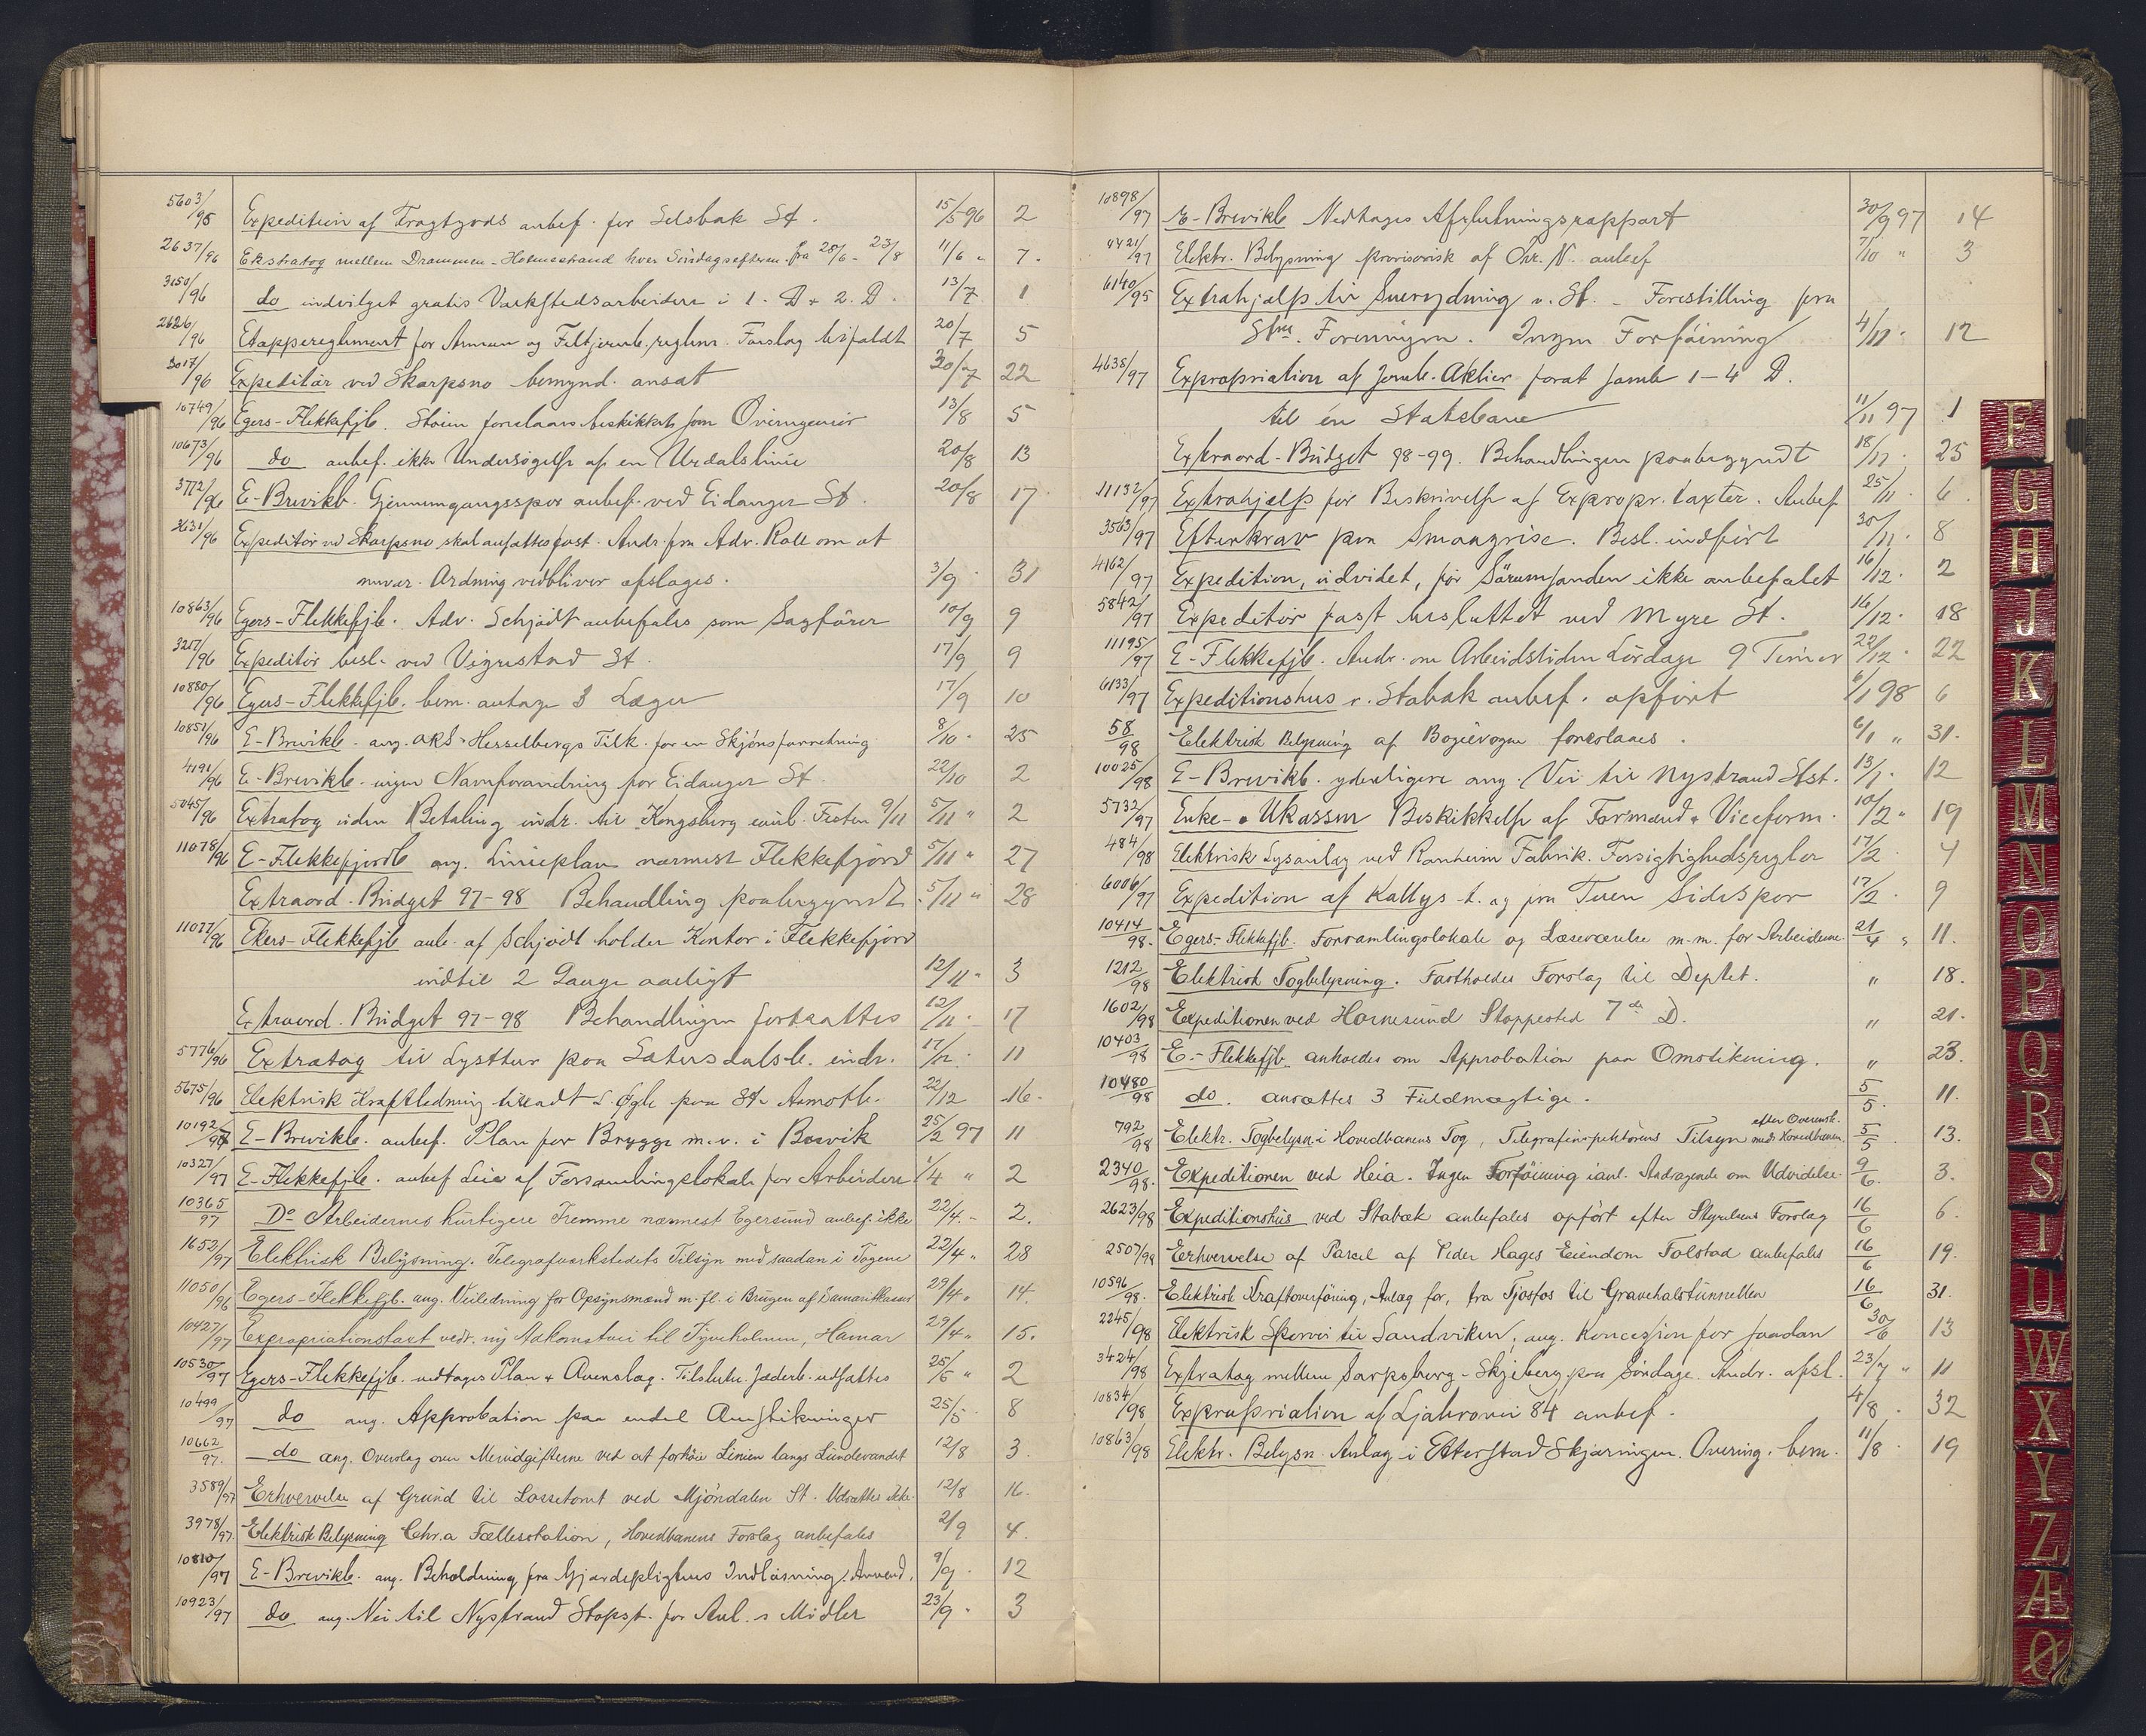 5603/95 Expedition af Fragtgods anbef. for Selsbak St. 15/5 96 2
2637/96 Ekstratog mellem Drammen - Holmestrand hver Söndagsefterm. fra 28/6 - 23/8 11/6 " 7.
3150/96 do indvilget gratis Værkstedsarbeidere i 1. D & 2. D. 13/7 1
2626/96 Etappereglement for Armeen og Feltjernb.reglm. Forslag bifaldt 20/7 5
3017/96 Expeditör ved Skarpsno bemynd. ansat 30/7 22
10749/96 Egers-Flekkefjb. Stoim foreslaaes beskikket som Överingeniör 13/8 5
10673/96 do anbef. ikke Undersögelse af en Urdalslinie 20/8 13
3772/96 E-Brevikb. Gjennemgangsspor anbef. ved Eidanger St. 20/8 17
2631/96 Expeditör ved Skarpsno skal ansættes fast. Andr. fra Adv. Roll om at
nuvær. Ordning vedbliver afslages. 3/9 31
10863/96 Egers-Flekkefjb. Adv. Schjödt anbefales som Sagförer 10/9 9
3217/96 Expeditör besl. ved Vigrestad St. 17/9 9
10880/96 Egers-Flekkefjb. bem. antage 3 Læger 17/9 10
10851/96 E-Brevikb. ang. ORS. Hesselbergs Tilk. for en Skjönsforretning 8/10 25
4191/96 E-Brevikb. ingen Navnforandring for Eidanger St. 22/10 2
5045/96 Extratog uden Betaling indr. til Kongsberg 9/11 5/11 " 2
11078/96 E-Flekkefjordb ang. Linieplan nærmest Flekkefjord 5/11 " 27
Extraord. Budget 97-98 Behandling paabegyndt 5/11 " 28
11077/96 Ekers-Flekkefjb anb. af Schjödt holder Kontor i Flekkefjord
indtil 2 Gange aarligt 12/11 " 3
Extraord. Budget 97-98 Behandlingen fortsattes 12/11 17
5776/96 Extratog til Lysttur paa Sætersdalsb. indr. 17/12 11
5675/96 Elektrisk Kraftledning tilladt paa St. Aamotb. 22/12 16
10192/97 E-Brevikb. anbef. Plan for Brygge m.v. i Brevik 25/2 97 11
10327/97 E-Flekkefjb. anbef Leie af Forsamlingslokale for Arbeidere 1/4 " 2
10365/97 Do Arbeidernes hurtigere Fremme nærmest Egersund anbef. ikke 22/4 - 2.
1652/97 Elektrisk Belysning. Telegrafværkstedets Tilsyn med saadan i Togene 22/4 " 28
11050/96 Egers-Flekkefjb. ang. Veiledning for Opsynsmænd m. fl. i Brugen af Samaritkasser 29/4 " 14.
10427/97 Expropriationstaxt vedr. ny Adkomstvei til Tyveholmen, Hamar 29/4 " 15.
10530/97 Egers-Flekkefjb. vedtages Plan & Overslag. Tilslutn. Jæderb. udsattes 25/6 " 2
10499/97 do ang. Approbation paa endel Omstikninger 25/5 8
10662/97. do ang. Overslag over Merudgifterne ved at forhöie Linien langs Lundevandet 12/8 3.
3589/97 Erhvervelse af Grund til Lossetomt ved Mjöndalen St. Udsættes ikke 12/8 16.
3978/97. Elektrisk Belysning Chr.a Fællesstation, Hovedbanens Forslag anbefales 2/9 4.
10810/97 E-Brevikb. ang. Beholdning fra Gjærdeplighens Indlösning. Anvend. 9/9 12
10923/97 do ang. Vei til Nystrand Stopst. for Anl.s Midler 23/9 3
10898/97 E-Brevikb Vedtages Afslutningsrapport 30/9 97 14
4421/97 Elektr. Belysning provisorisk af Chr. V. anbef 7/10 " 3
6140/95 Extrahjælp til Snerydning v. St. - Forestilling fra
Stm. Foreningen. Ingen Forföining 4/11 12
4638/97 Expropriation af Jernb. Aktier forat samle 1-4 D.
til én Statsbane 11/11 97 1
Extraord. Budget 98-99. Behandlingen paabegyndt 18/11 25
11132/97 Extrahjælp for Beskrivelse af Expropr. taxter. Anbef 25/11 6
3563/97 Efterkrav paa Smaagrise. Besl. indfört 30/11 8
4162/97 Expedition, udvidet, for Sörumsanden ikke anbefalet 16/12 2
5842/97 Expeditör fast besluttet ved Myre St. 16/12 18
11195/97 E-Flekkefjb. Andr. om Arbeidstiden Lördage 9 Timer 22/12 22
6133/97 Expeditionshus v. Stabæk anbef. opfört 6/1 98 6
58/98 Elektrisk Belysning af Bogievogne foreslaaes. 6/1 " 31.
10025/98 E-Brevikb. yderligere ang. Vei til Nystrand Stst. 13/1 12
5732/97 Enke- & Ukassen Beskikkelse af Formand & Viceform. 10/2 " 19
484/98 Elektrisk Lysanlæg ved Ranheim Fabrik. Forsigtighedsregler 17/2 4
6006/97 Expedition af Kalhys t. og fra Tuen Sidespor 17/2 9
10414/98. Egers-Flekkefjb. Forsamlingslokale og Læseværelse m.m. for Arbeiderne. 21/4 " 11.
1212/98 Elektrisk Togbelysning. Fastholdes Forslag til Deptet. " 18.
1602/98 Expeditionen ved Hornesund Stoppested 7de D. " 21.
10403/98 E.-Flekkefjb. anholdes om Approbation paa Omstikning. " 23.
10480/98 do. ansættes 3 Fuldmægtige. 5/5. 11.
792/98 Elektr. Togbelysn. i Hovedbanens Tog, Telegrafinspektörens Tilsyn efter Overensk. med Hovedbanen. 5/5 13.
2340/98. Expeditionen ved Heia. Ingen Forföining ianl. Andragende om Udvidelse. 9/6. 3.
2623/98 Expeditionshus ved Stabæk anbefales opfört efter Styrelsens Forslag 16/6 6.
2507/98 Erhvervelse af Parcel af Peder Hages Eiendom Folstad anbefales 16/6 19.
10596/98. Elektrisk Kraftoverföring, Anlæg for, fra Fjosfos til Gravehalstunnellen 16/6 31.
2245/98 Elektrisk Sporvei til Sandviken, ang. Koncession for saadan 30/6 13
3424/98 Extratog mellem Sarpsborg-Skjeberg paa Söndage. Andr. afsl. 23/7 " 11
10834/98 Expropriation af Ljabrovei 84 anbef. 4/8 32
10863/98 Elektr. Belysn. Anlæg i Etterstad Skjæringen. Overing. bem. 11/8 19
F
G
H
J
K
L
M
N
O
P
Q
R
S
T
U
W
X
Y
Z
Æ
Ø